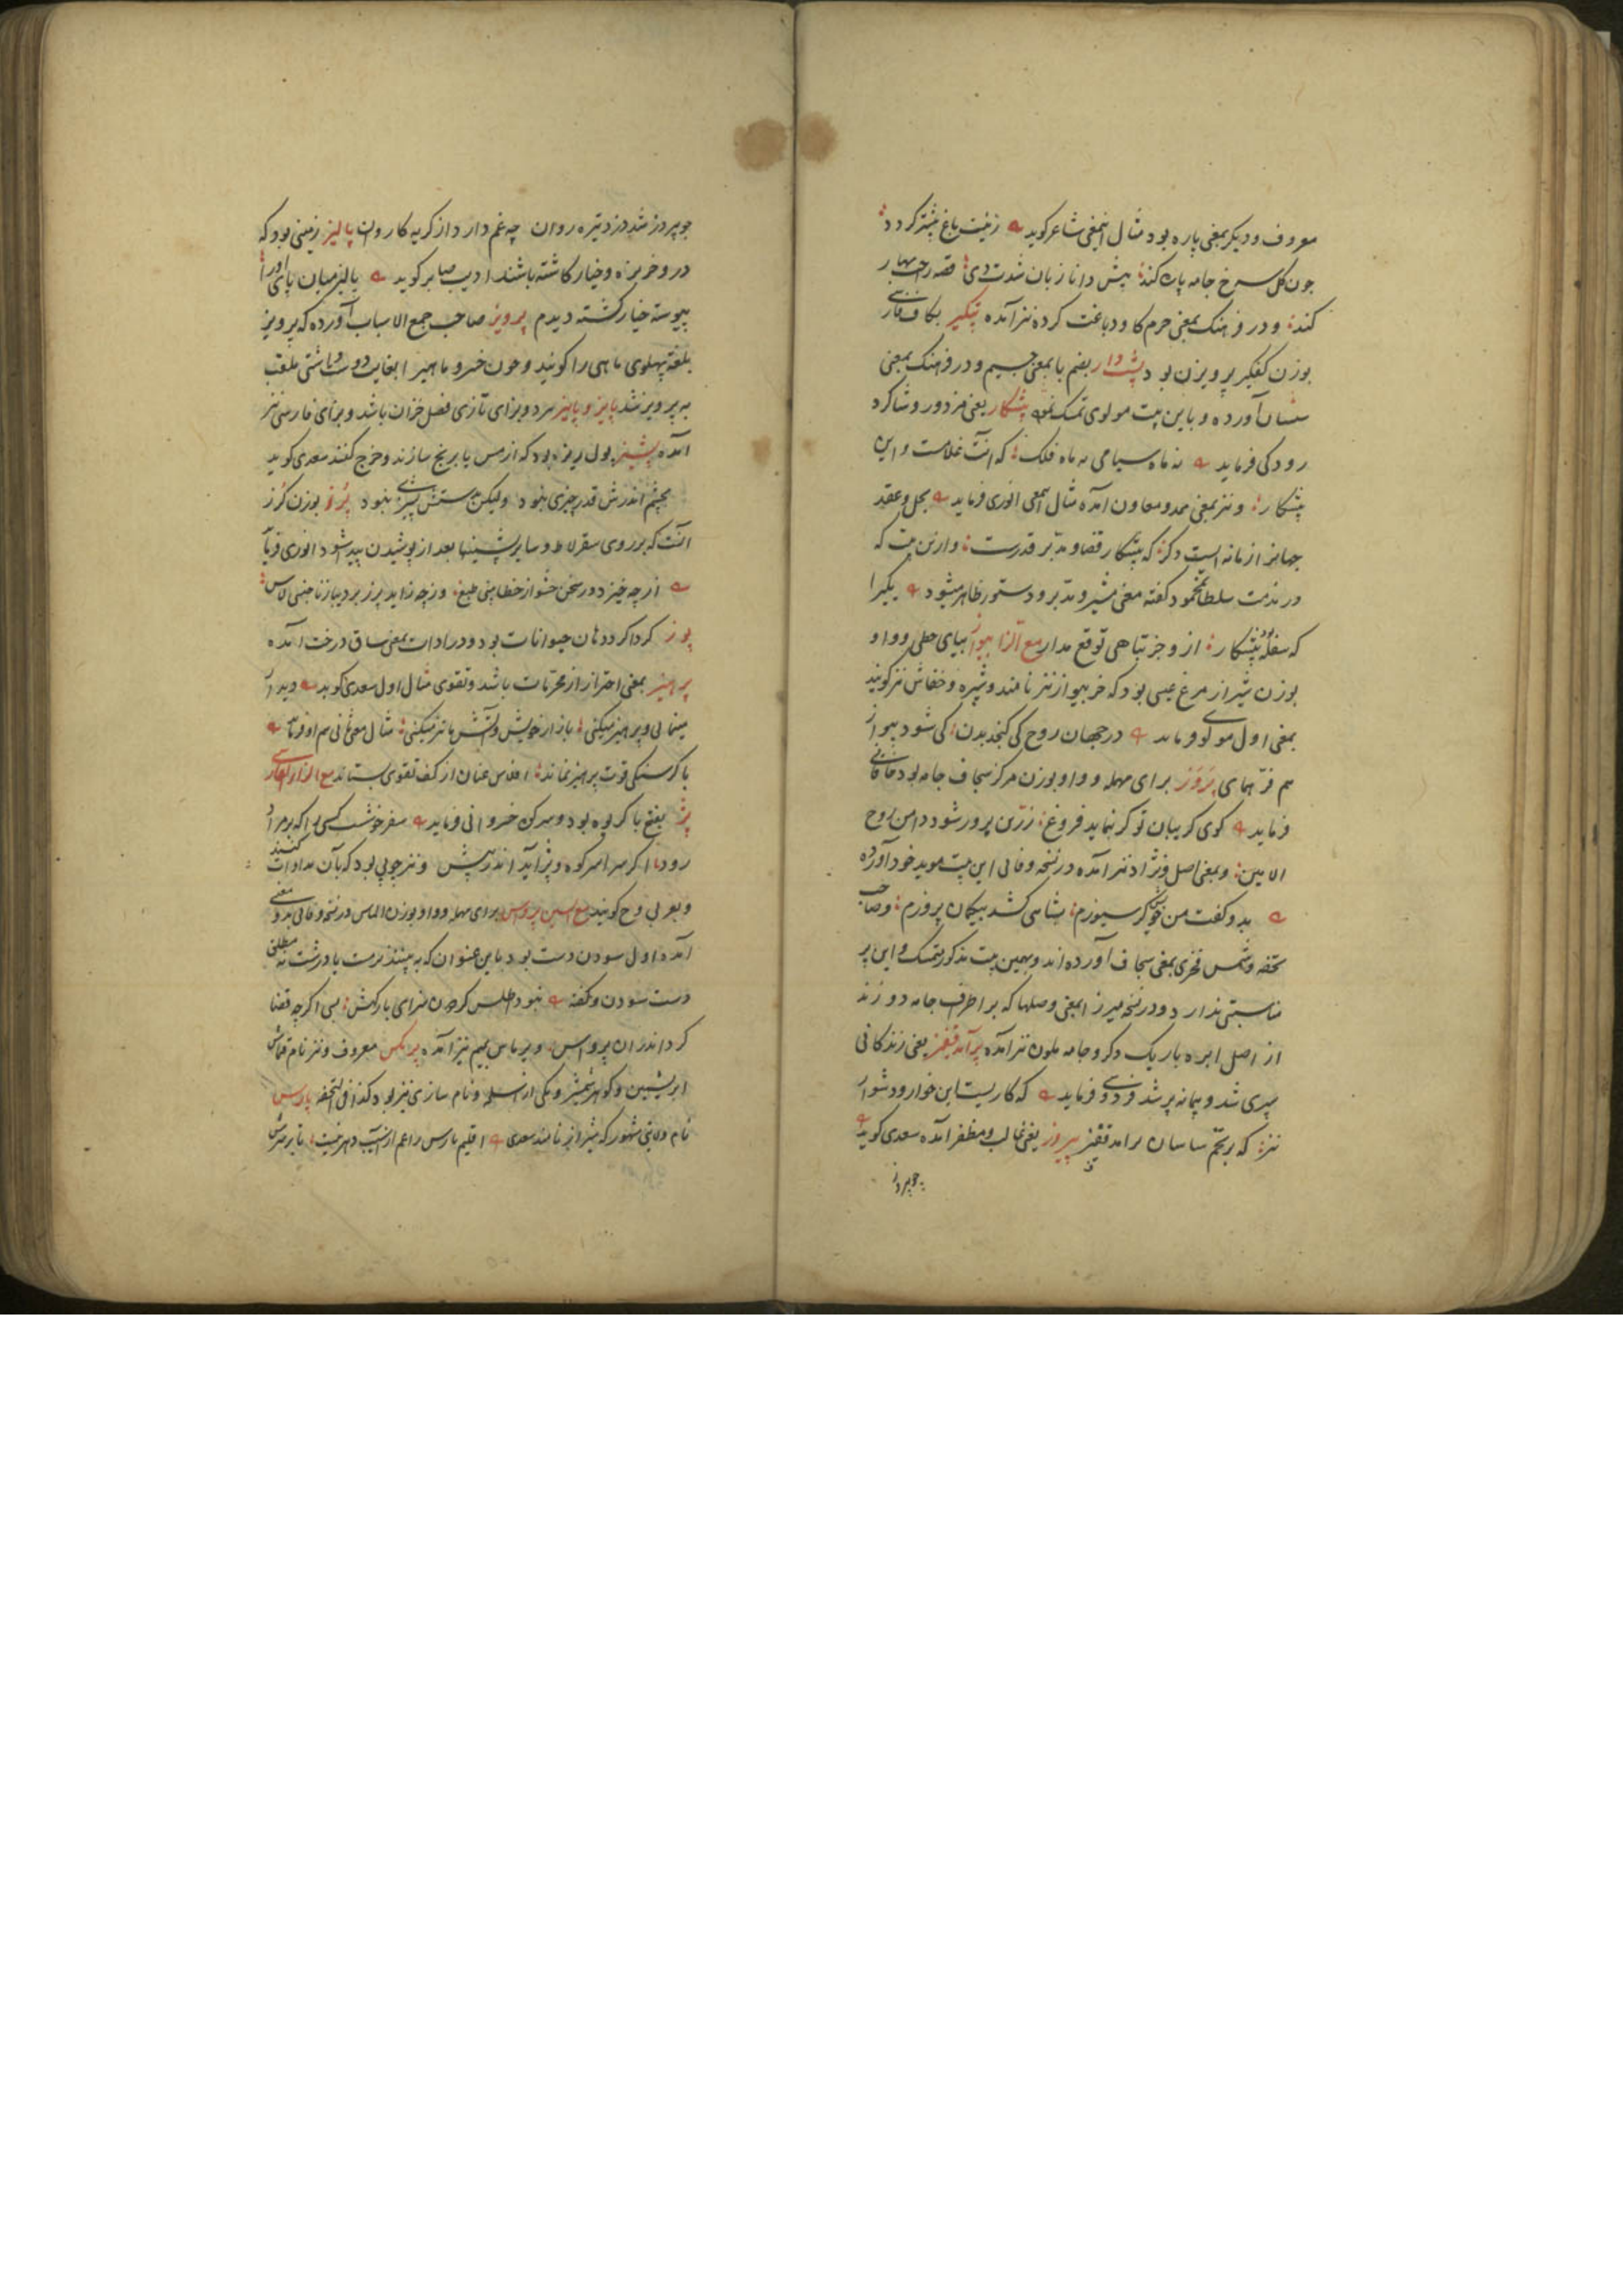 معروف و دیکر بمعنی پاره بود مثال این معنی شاعر کوید زینت باغ بیشتر کردد
چون کل سرخ جامه پاره کند پیش دانا زبان شدت دی قصه راحت بهار
کند و در فرهنک بمعنی چرم کاو دباغت کرده نیز آمده پتکیر بکاف فارسی
بوزن کفکیر پرویزن بود پشدار بضم با بمعنی جسیم و در فرهنک بمعنی
آورده و باین بیت مولوی تمسک نموده پیشکار یعنی مزدور و شاکرد
رودکی فرماید نه ماه سیامی نه ماه فلک که اینت غلامست و این
پیشکار و نیز بمعنی ممد و معاون آمده مثال این معنی انوری فرماید بحل و عقد
جهانرا زمانه ایست دکر که پیشکار قضا و مدبر قدرست و ازین بیت که
در مذمت سلطان محمود کفته معنی مشیر و مدبر و دستور ظاهر میشود یکیرا
که سفله بود پیشکار ازو جز تباهی توقع مدار مع الزا بیواز ببای حطی و واو
بوزن شیراز مرغ عیسی بود که خربیواز نیز نامند و شپره و خفاش نیز کویند
بمعنی اول مولوی فرماید در جهان روح کی کنجد بدن کی شود بیواز
هم فر همای پروز برای مهمله و واو بوزن مرکز سجاف جامه بود خاقانی
فرماید کوی کریبان تو کر بنماید فروغ زرین پروز شود دامن روح
الامین و بمعنی اصل و نژاد نیز آمده در نسخه وفائی این بیت موید خود آورده
بدو کفت من خویش کرسیوزم بشاهی کشد بیکمان پروزم و صاحب
تحفه و شمس فخری بمعنی سجاف آورده اند و بهمین بیت مذکور متمسک و این پر
مناسبتی ندارد و در نسخه میرزا بمعنی وصلها که بر اطراف جامه دوزند
از اصل ابره باریک و کر و جامه ملون نیز آمده برآمد قفیز یعنی زندکانی
سپری شد و پیمانه پر شد فردوسی فرماید که کاریست این خوار و دشوار
نیز که بر تخم ساسان برآمد قفیز پیروز یعنی غالب و مظفر آمده سعدی کوید
چو پیروز
چو پیروز شد دزد تیره روان چه غم دارد از کریه کاروان پالیز زمینی بود که
درو خربزه و خیار کاشته باشند ادیب صابر کوید پالیزبان پای او را
پیوسته خیار کشته دیدم پرویز صاحب جمع الاسباب آورده که پرویز
بلغة پهلوی ماهی را کویند و چون خسرو ماهیرا بغایت دوست داشتی ملقب
به پرویز شد پاییز و پالیز هر دو برای تازی فصل خزان باشد و برای فارسی نیز
آمده پشیز پول ریزه بود که از مس یا برنج سازند و خرج کنند سعدی کوید
بچشم اندرش قدر چیزی نبود ولیکن بدستش پشیزی نبود پرز بوزن کرز
آنست که بر روی سقرلاط و سایر پشینها بعد از پوشیدن پیدا شود انوری فرماید
از چه خیزد در سخن حشو از خطابینی طبع وز چه زاید پرز بر دیبا ز ناجنسی لاس
پوز کرداکرد دهان حیوانات بود و در ادات بمعنی ساق درخت آمده
پرهیز بمعنی احتراز از محرمات باشد و تقوی مثال اول سعدی کوید دیدار
مینمائی و پرهیز میکنی بازار خویش و آتش ما تیز میکنی مثال معنی ثانی هم او فرماید
با کرسنکی قوت پرهیز نماند افلاس عنان از کف تقوی بستاند مع الزاء الفارسی
پژ بفتح با کریوه بود و سر کوه خسروانی فرماید سفر خوشست کسی را که بر مراد
رود اکر سراسر کوه و پژ آید اندر پیش و نیز چوبی بود که بآن مداوات کنند
و بعربی وج کویند مع السین پرواس برای مهمله و واو بوزن الماس در نسخه وفائی بدو معنی
آمده اول سودن دست بود باین عنوان که به بینند نرمست یا درشت نه مطلق
دست سودن و کفته نبود اطلس کردون سزای بارکهش بسی اکرچه قضا
کرد اندران پرواس و پرماس بمیم نیز آمده پرنکس معروف و نیز نام قماش
ابریشمین و کوهر شمشیر و یکی از اسلحه و نام سازی نیز بود کذا فی التحفه پارس
نام ولایتی مشهور که شیراز نیز نامند سعدی اقلیم پارس را غم از آسیب دهر نیست تا بر سرش